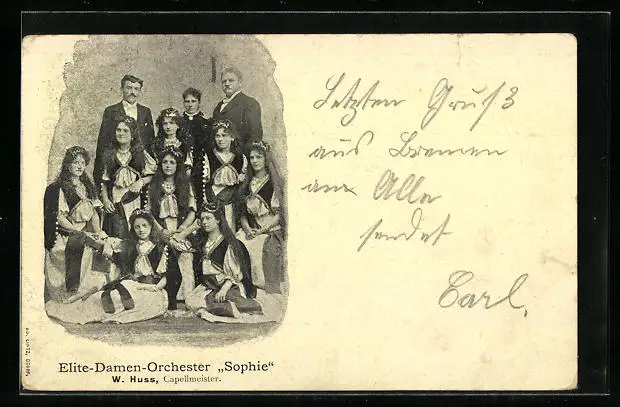 Letzten Gruß
aus Bremen
an Alle
sendet
Carl.
Elite-Damen-Orchester „Sophie“
W. Huss, Capellmeister.